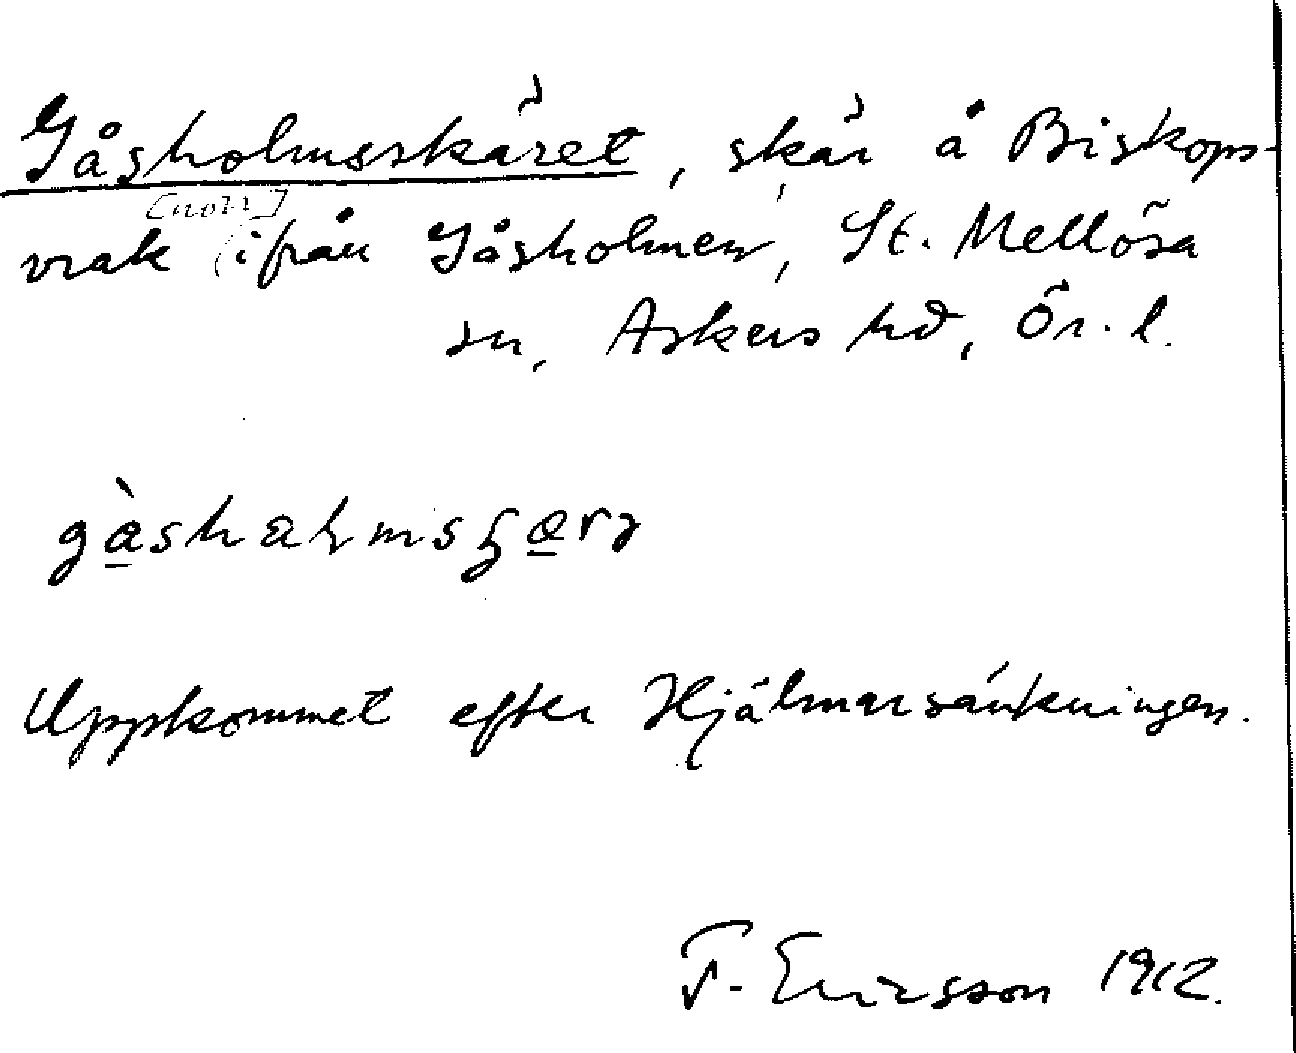 Gåsholmsskäret, skär å Biskops-
vrak [norr] ifrån Gåsholmen, St. Mellösa
sn, Askers hd, Ör. l.
Uppkommet efter Hjälmarsänkningen.
F. Ericsson 1912.